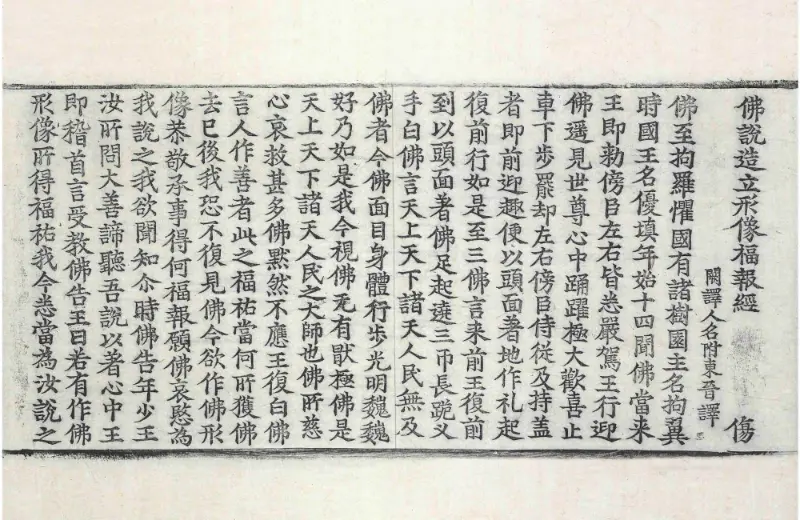 佛說造立形像福報經 傷
闕譯人名附東晉譯
佛至拘羅懼國有諸樹園主名拘翼
時國王名優填年始十四聞佛當来
王即勑傍臣左右皆悉嚴駕王行迎
佛遥見世尊心中踊躍極大歡喜止
車下步罷却左右傍臣侍從及持盖
者即前迎趣便以頭面著地作礼起
復前行如是至三佛言来前王復前
到以頭面著佛足起遶三帀長跪叉
手白佛言天上天下諸天人民無及
佛者今佛面目身體行步光明巍巍
好乃如是我今視佛无有猒極佛是
天上天下諸天人民之大師也佛所慈
心哀救甚多佛黙然不應王復白佛
言人作善者此之福祐當何所獲佛
去已後我恐不復見佛今欲作佛形
像恭敬承事得何福報願佛哀愍為
我說之我欲聞知尒時佛告年少王
汝所問大善諦聽吾說以著心中王
即稽首言受教佛告王曰若有作佛
形像所得福祐我今悉當為汝說之